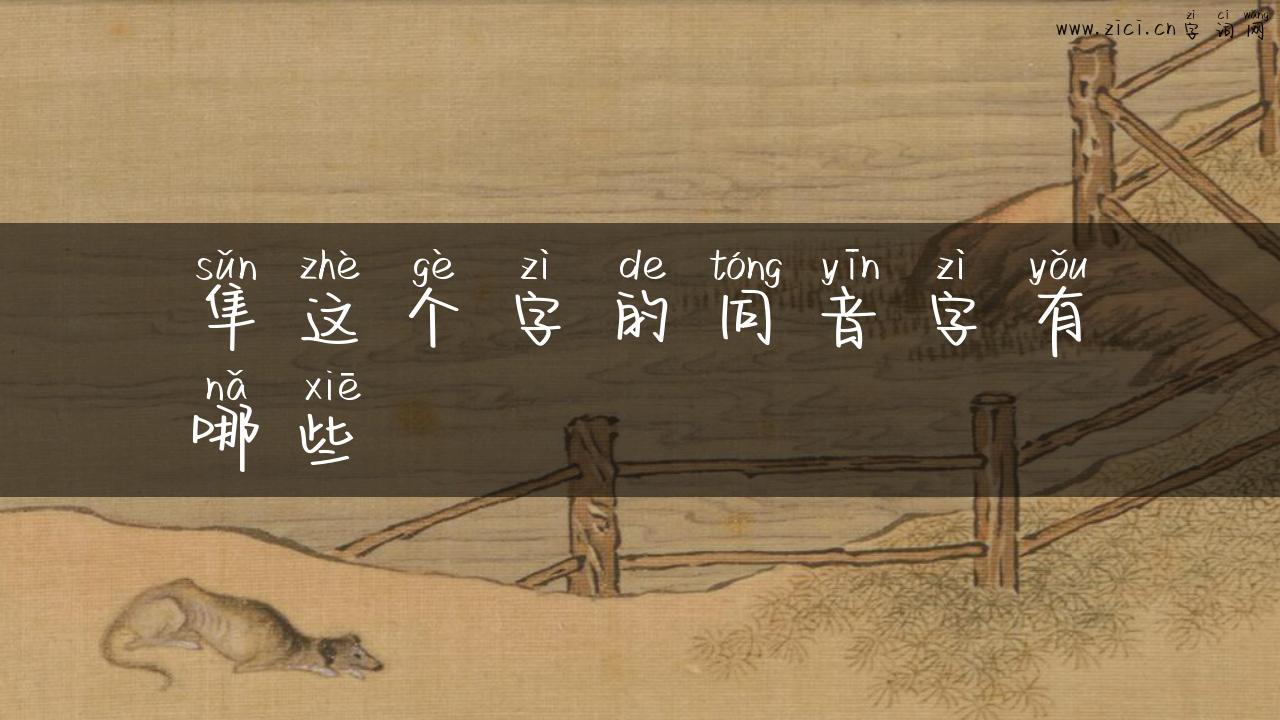 zi ci wang
www.zici.cn 字词网
sǔn zhè gè zì de tóng yīn zì yǒu
隼这个字的同音字有
nǎ xiē
哪些